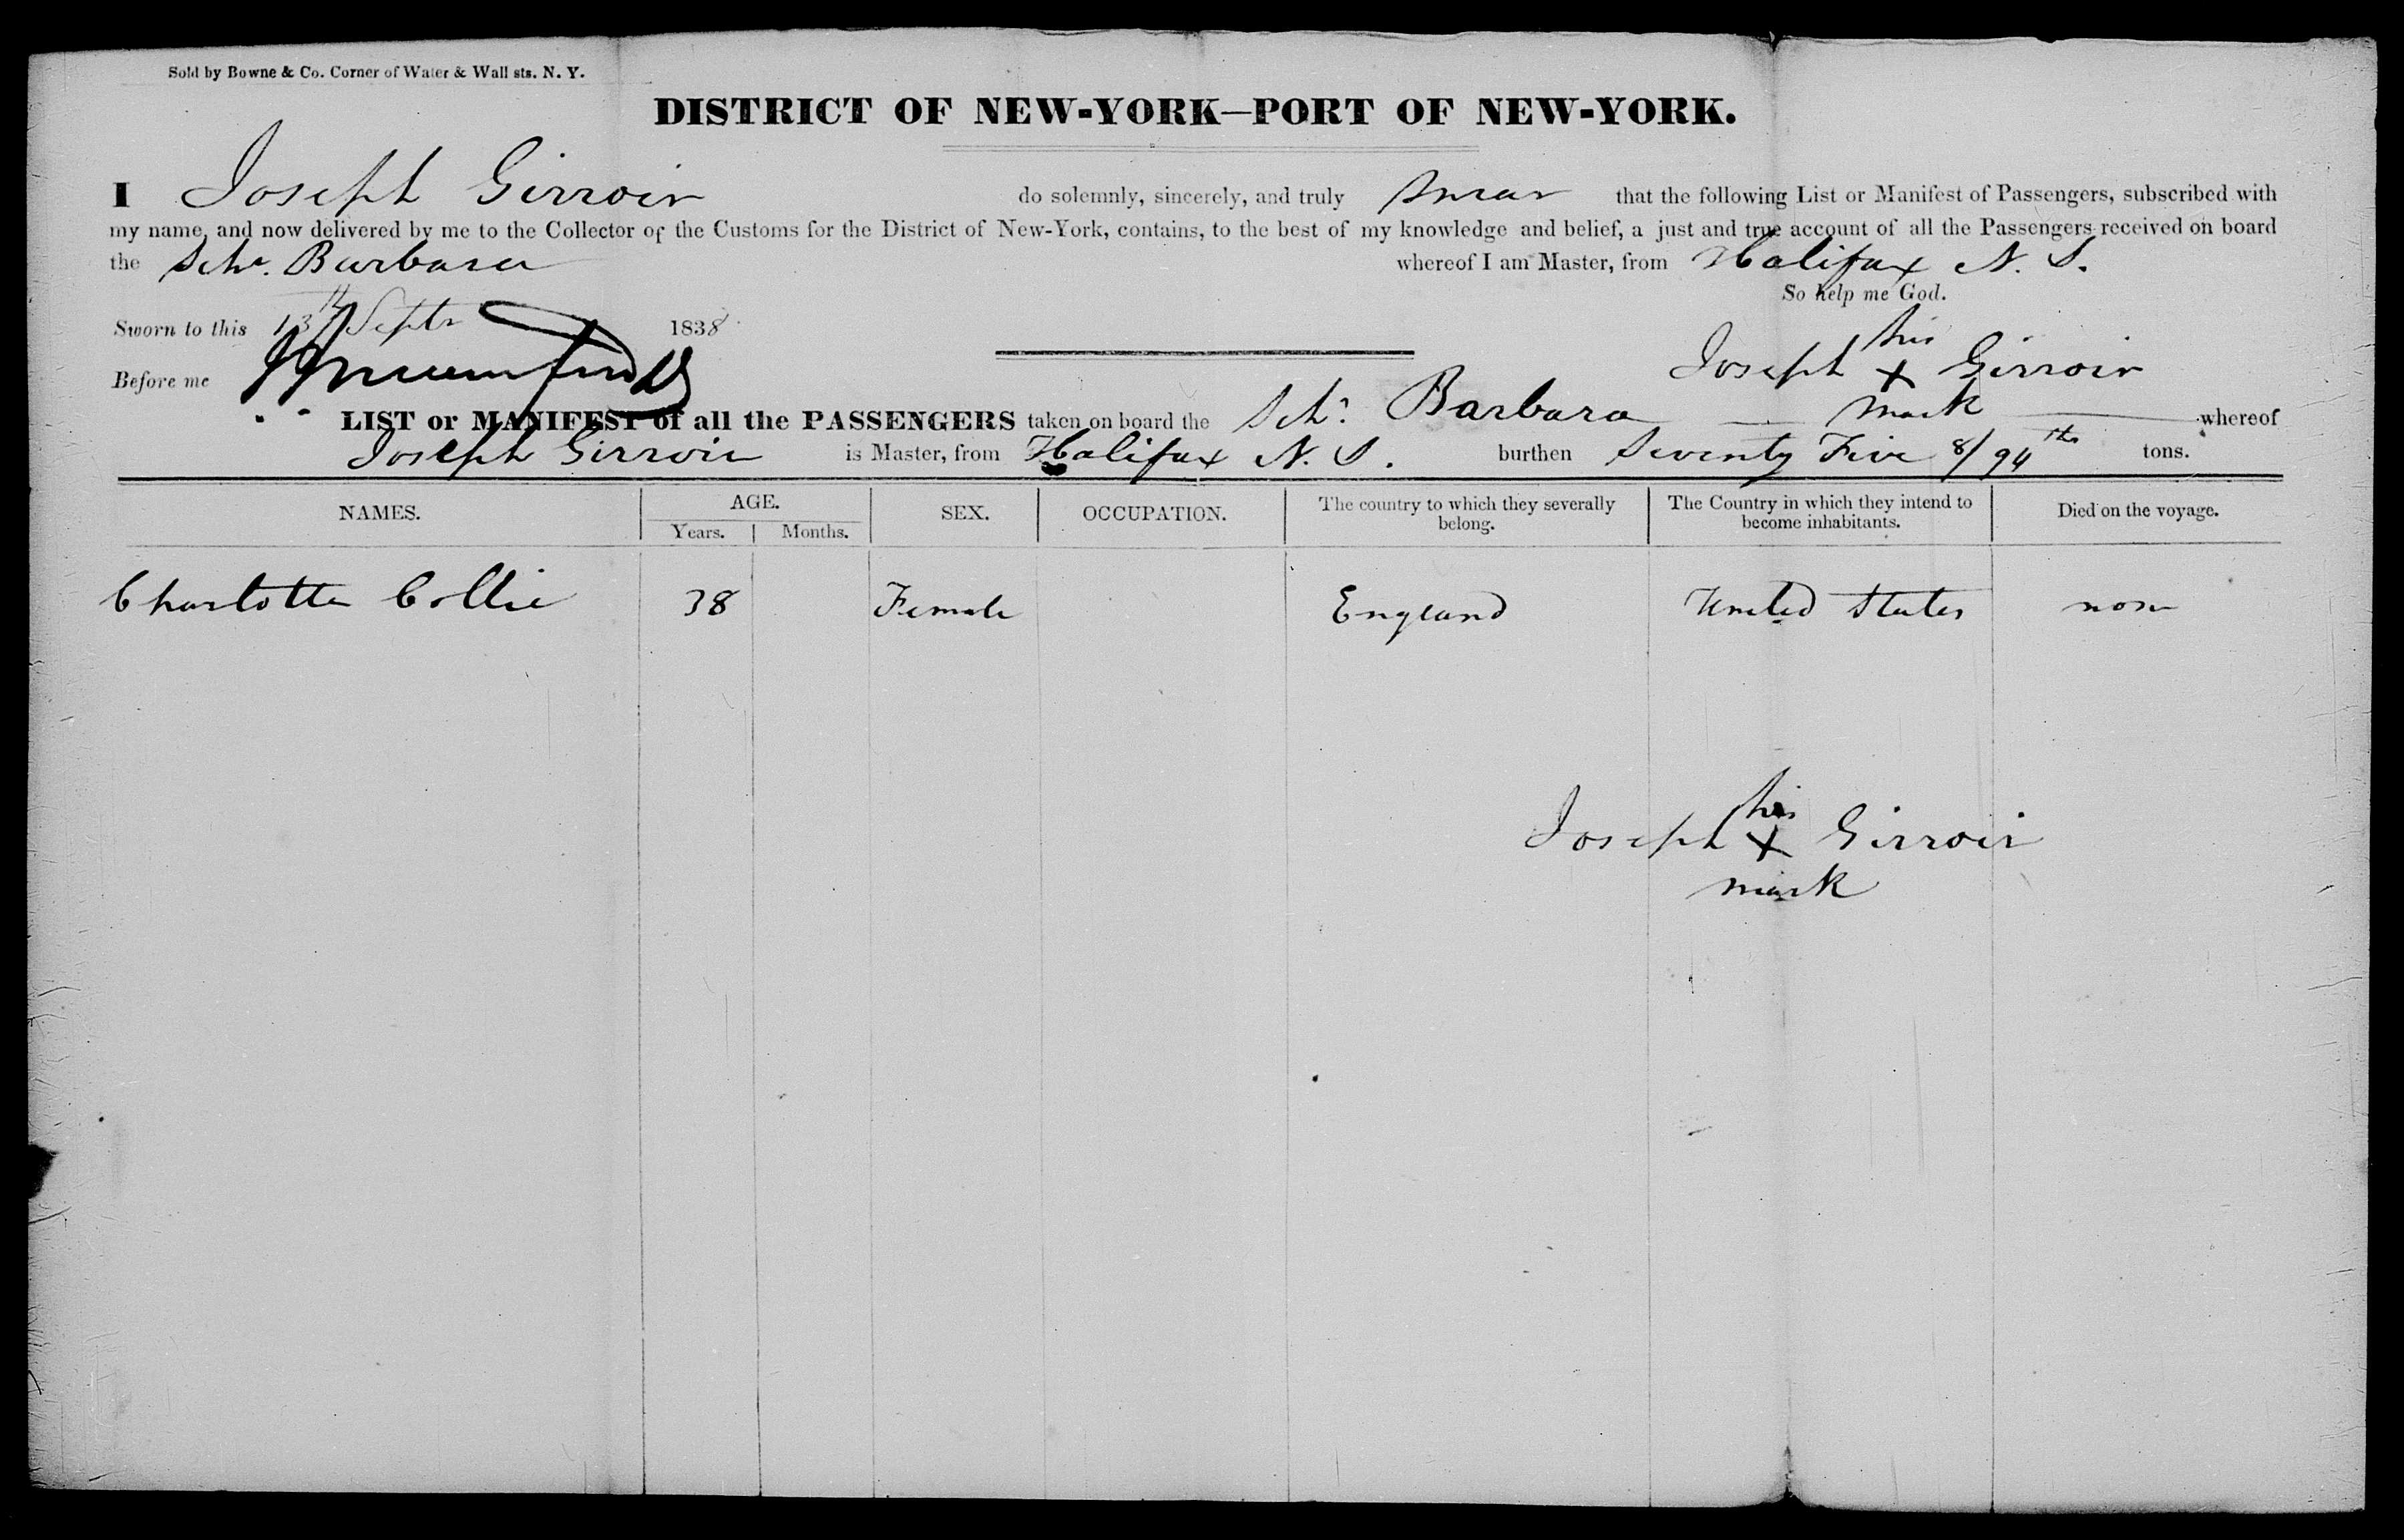 Sold by Bowne & Co. Corner of Water & Wall sts. N. Y.
DISTRICT OF NEW-YORK—PORT OF NEW-YORK.
I Joseph Girroir do solemnly, sincerely, and truly swear that the following List or Manifest of Passengers, subscribed with
my name, and now delivered by me to the Collector of the Customs for the District of New-York, contains, to the best of my knowledge and belief, a just and true account of all the Passengers received on board
the Schr. Barbara whereof I am Master, from Halifax N. S.
So help me God.
Sworn to this 13th Septr 1838
his
Before me Joseph X Girroir
mark
LIST or MANIFEST of all the PASSENGERS taken on board the Schr. Barbara whereof
Joseph Girroir is Master, from Halifax N. S. burthen Seventy Five 8/94ths tons.
NAMES. AGE. SEX. OCCUPATION. The country to which they severally belong. The Country in which they intend to become inhabitants. Died on the voyage.
Years. Months.
Charlotte Collie 38 Female England United States none
his
Joseph X Girroir
mark